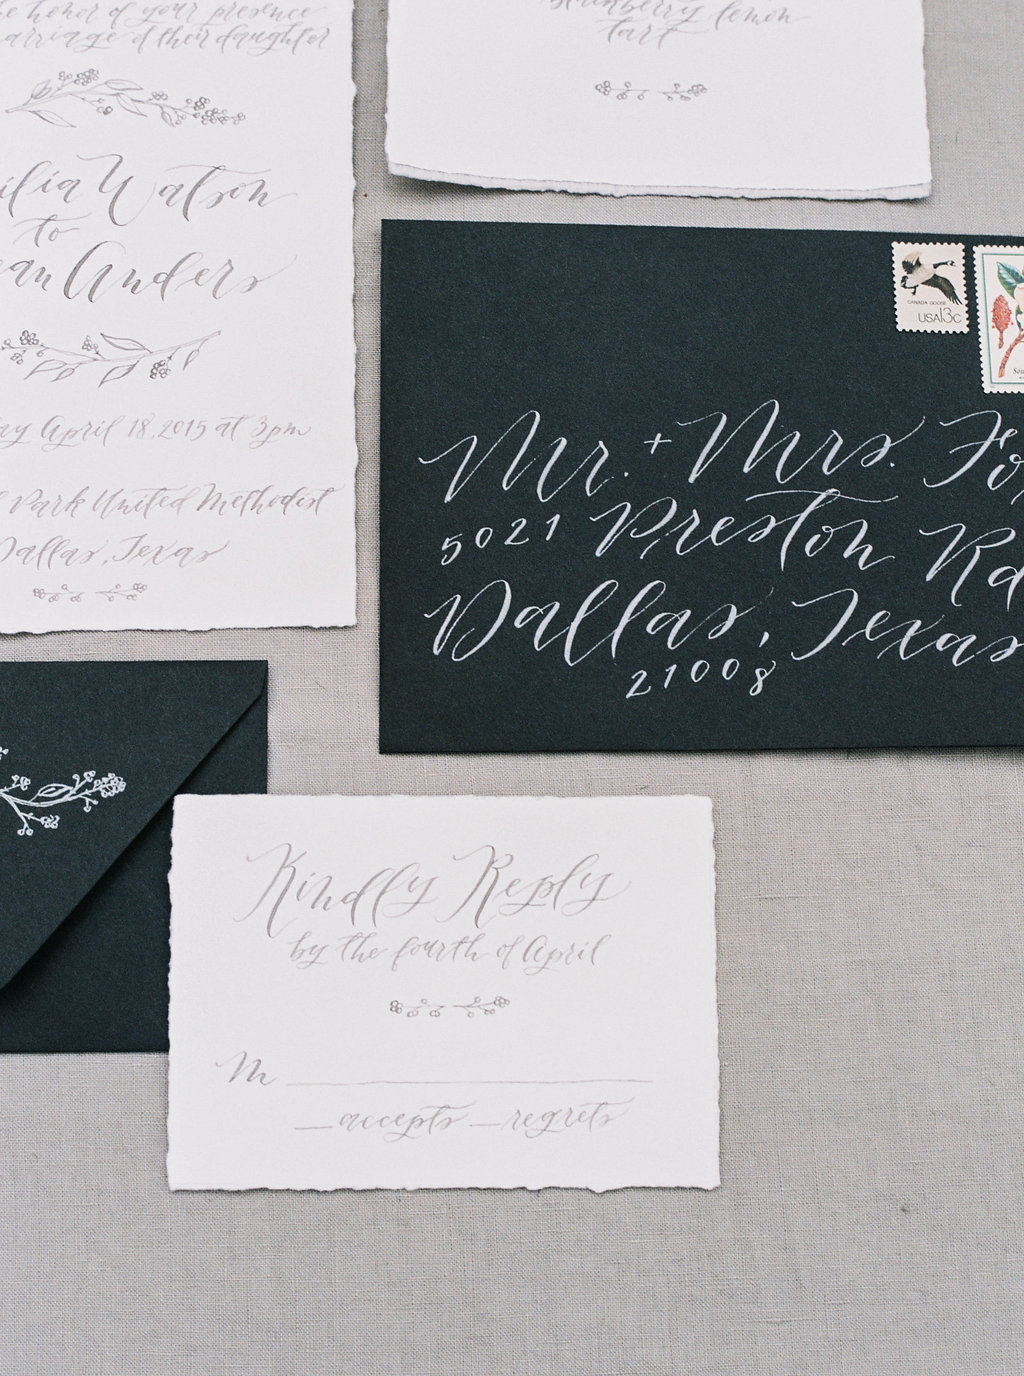 honor of your presence
marriage of their daughter
Watson
to
Anders
April 18, 2015 at 3pm
Park United Methodist
Dallas, Texas
lemon
tart
CANADA GOOSE
USA13c
Mr. + Mrs.
5021 Preston Rd
Dallas, Texas
21008
Kindly Reply
by the fourth of April
M
accepts regrets